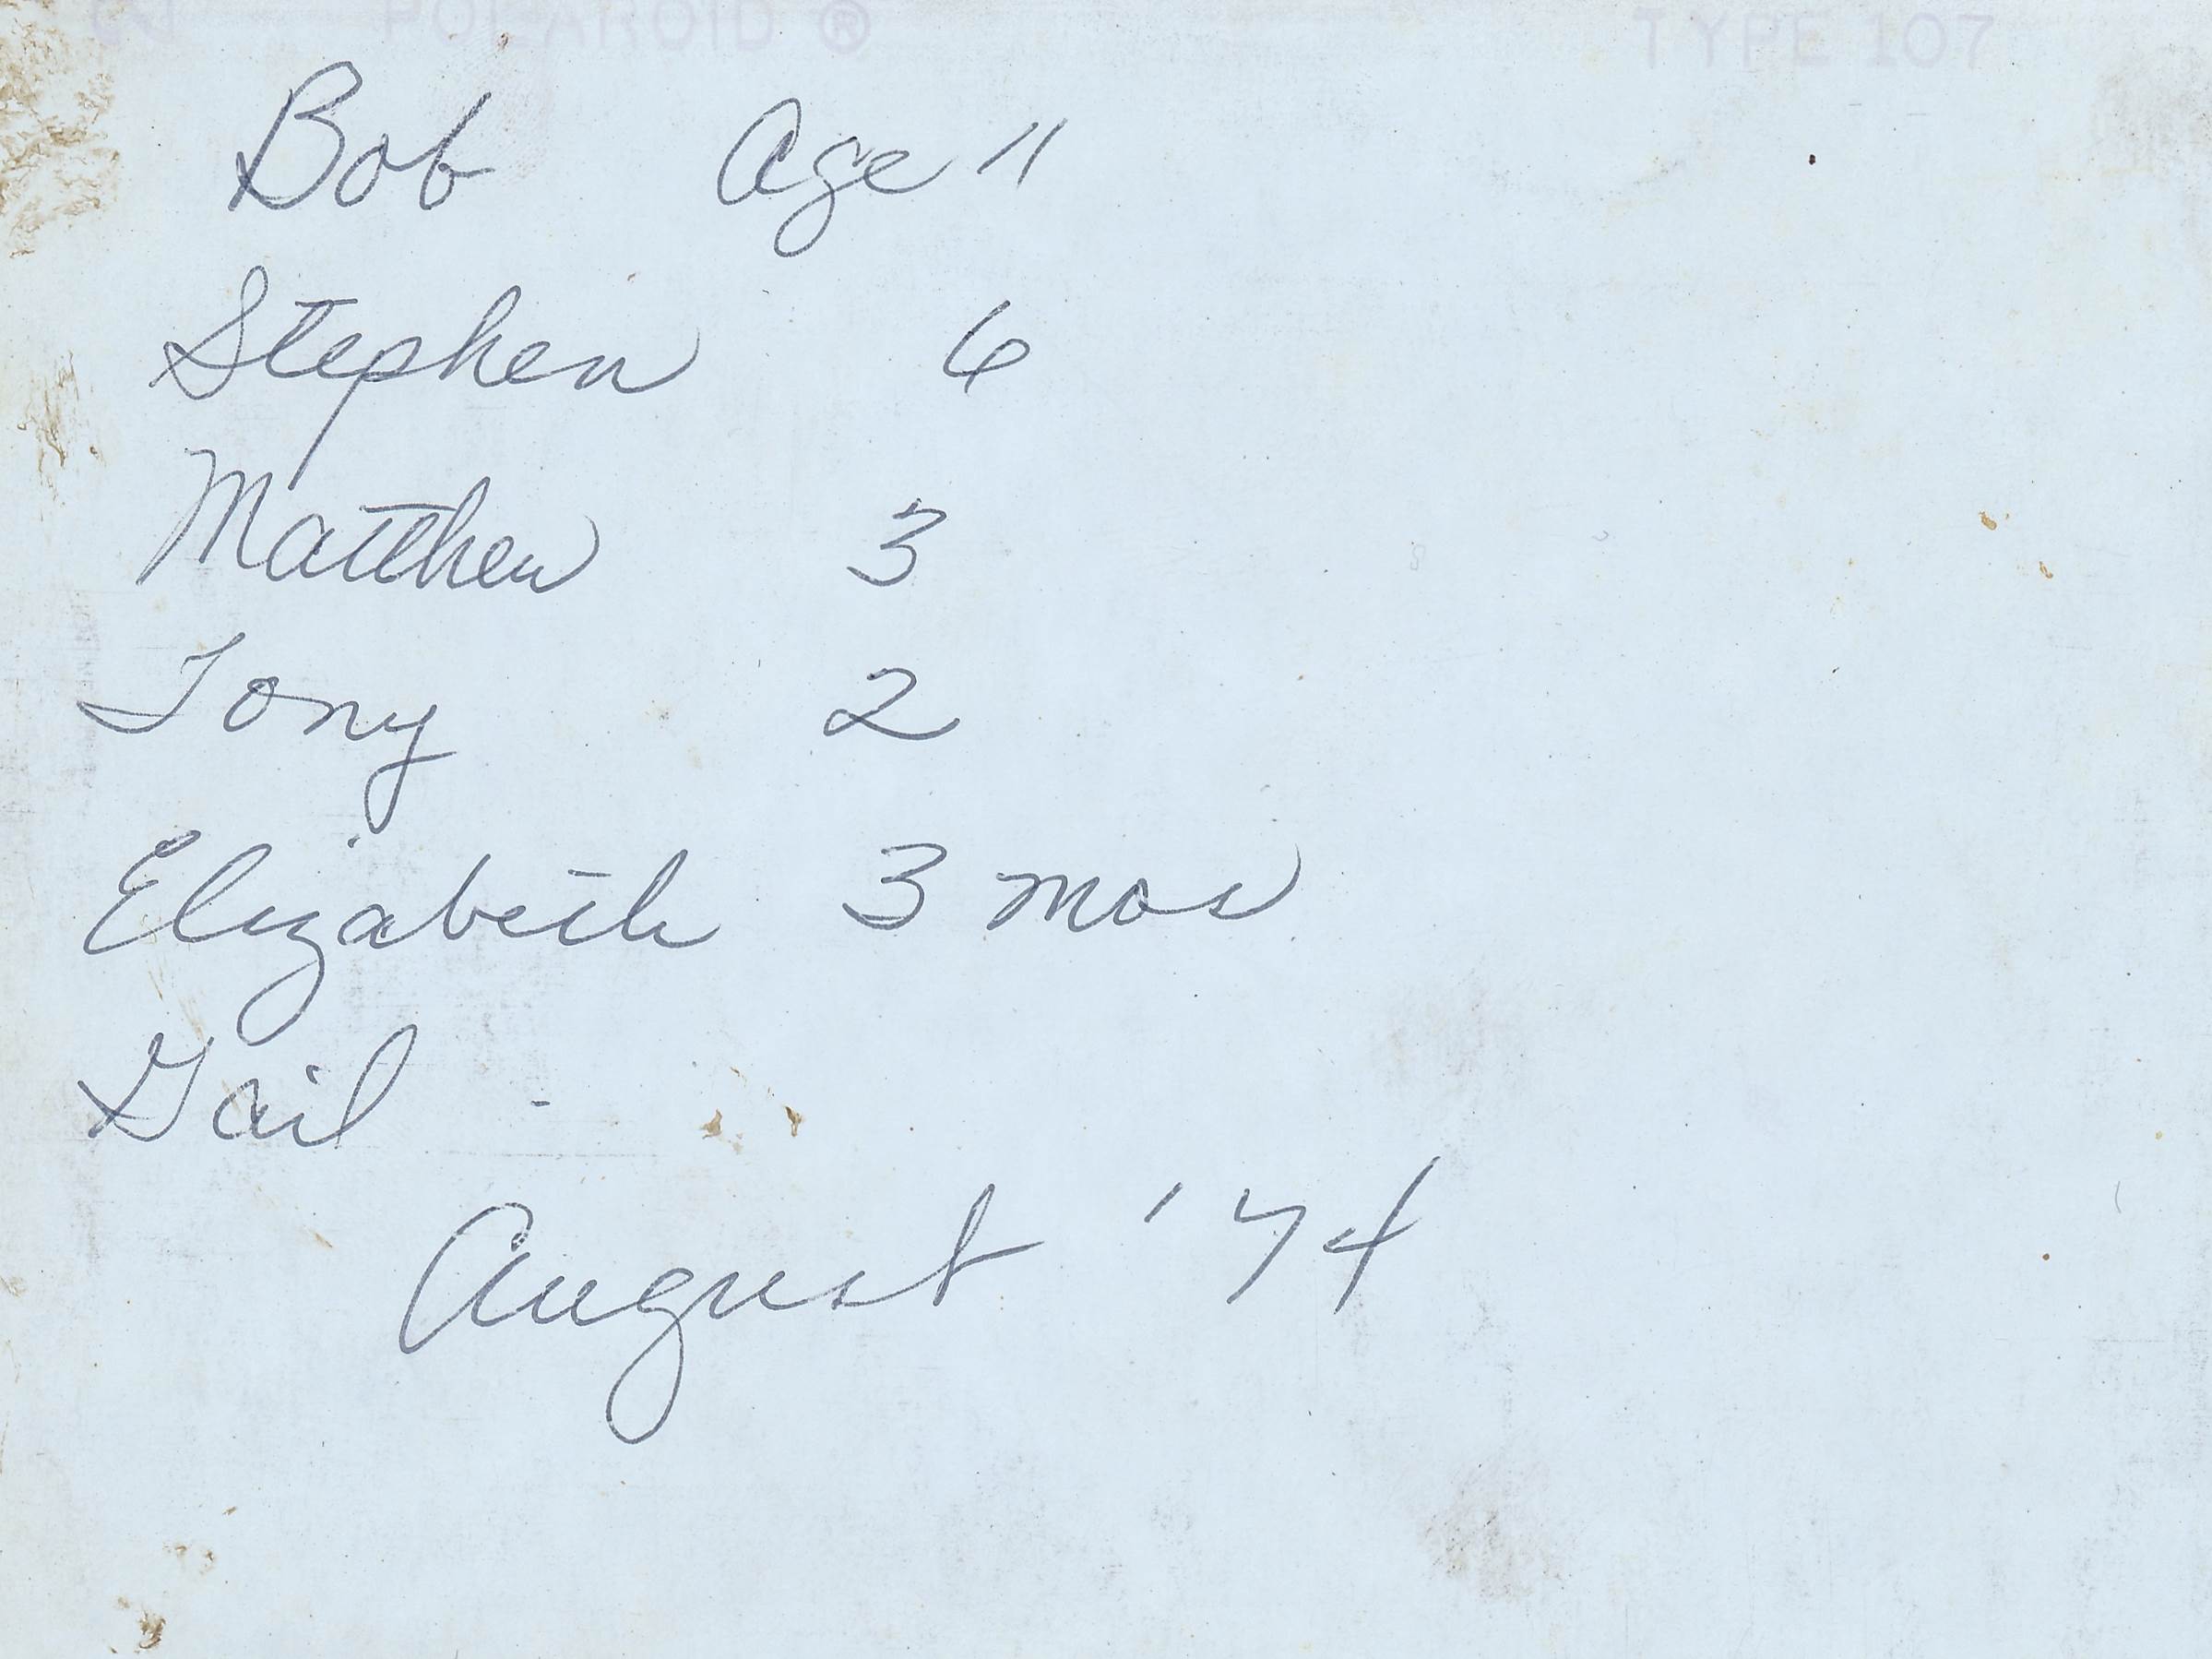 POLAROID ® TYPE 107
Bob Age 11
Stephen 6
Matthew 3
Tony 2
Elizabeth 3 mos
Gail -
August '74